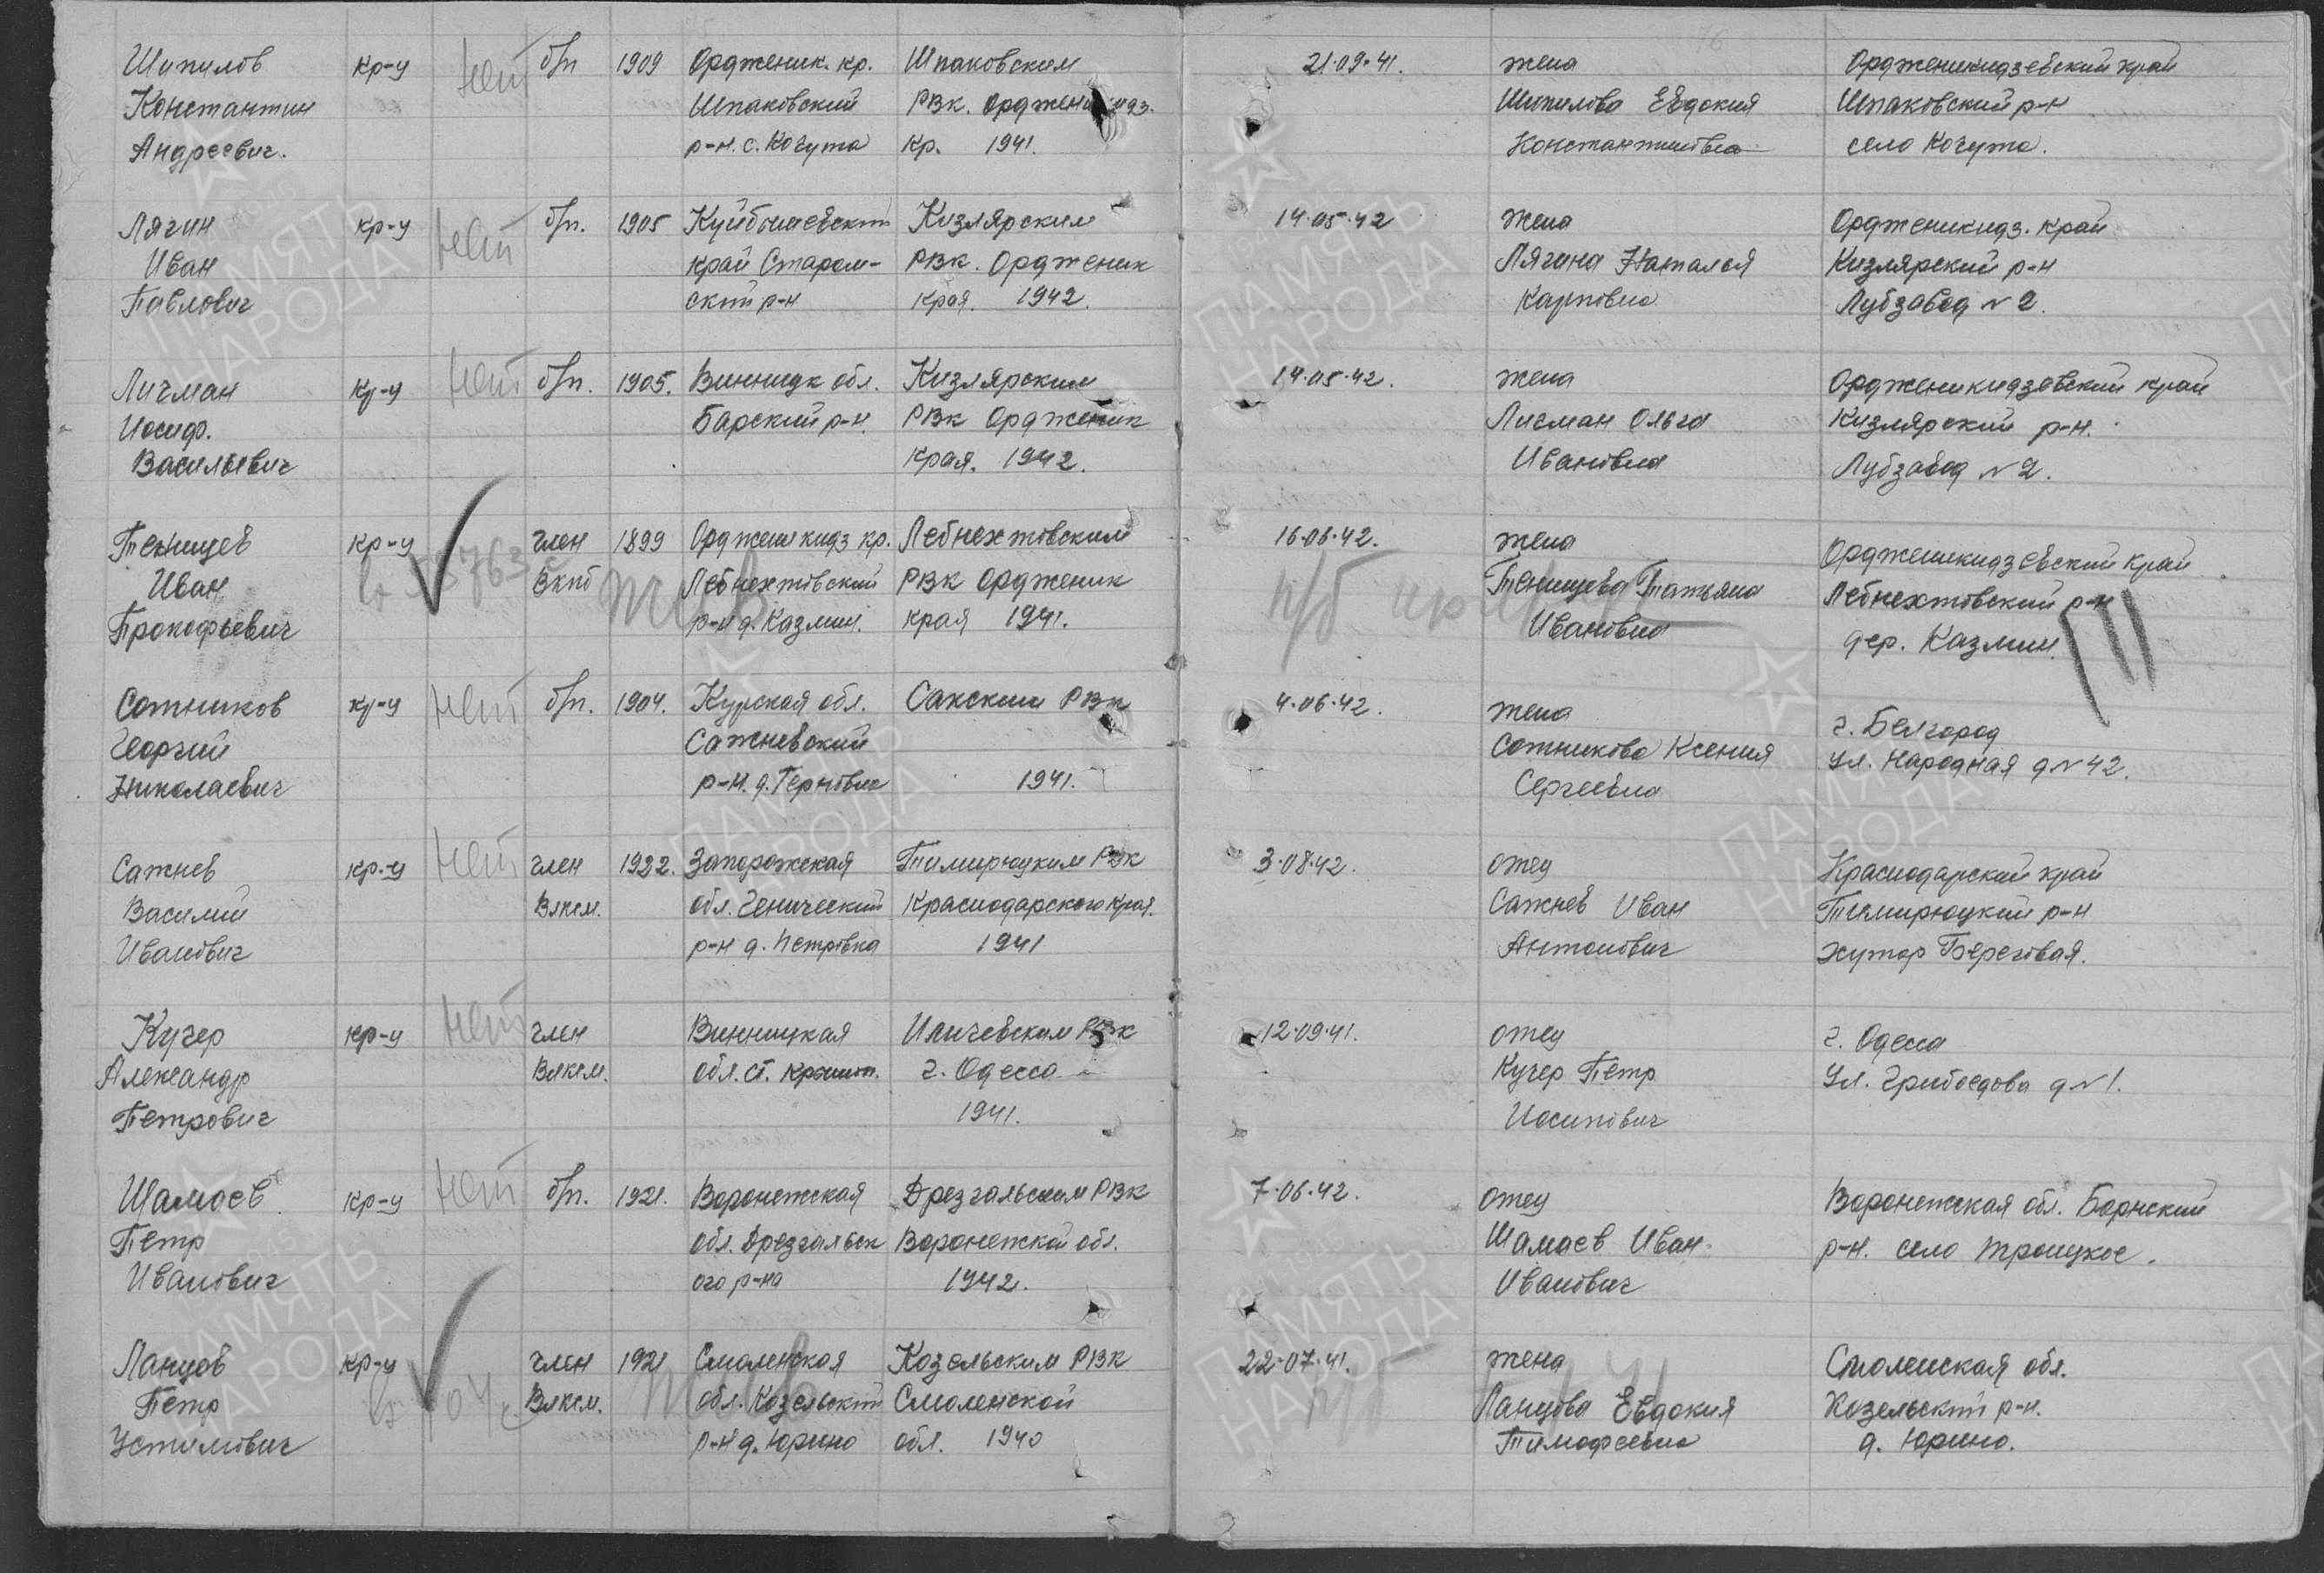 Шипилов кр-у нет б/п 1909 Ордженик. кр. Шпаковским 21.09.41. жена Орджени­кидзевский край
Константин Шпаковский РВК. Ордженикидз. Шипилова Евдокия Шпаковский р-н
Андреевич. р-н. с. Кочута кр. 1941. Константиновна село Кочута.
Лягин кр-у нет б/п. 1905 Куйбышевский Кизлярским 14.05.42 жена Орджени­кидз. край
Иван край Старом- РВК. Ордженик Лягина Наталья Кизлярский р-н
Павлович ский р-н края. 1942. Карповна Лубзавод N 2.
Личман кр-у нет б/п. 1905. Винницк обл. Кизлярским 14.05.42. жена Орджени­кидзевский край
Иосиф. Барский р-н. РВК Ордженик Личман Ольга Кизлярский р-н.
Васильевич края. 1942. Ивановна Лубзавод N 2.
Тенищев кр-у член 1899 Орджени­кидз кр. Лебнехтовским 16.06.42. жена Орджени­кидзевский край
Иван ВКПб Лебнехтовский РВК Ордженик п/б Тенищева Татьяна Лебнехтовский р-н
Прокофьевич р-н д. Казмин. края 1941. Ивановна дер. Казмин.
Сотников кр-у нет б/п. 1904. Курская обл. Сакским РВК 4.06.42. жена г. Белгород
Георгий Сажневский Сотникова Ксения ул. Народная д N 42.
Николаевич р-н. д. Тернович 1941. Сергеевна
Сажнев кр-у нет член 1922. Запорожская Тимирюцким РВК 3.08.42. отец Краснодарский край
Василий Влксм. обл. Генический Краснодарского края. Сажнев Иван Тимирюцкий р-н
Иванович р-н д. Петровка 1941 Антонович хутор Береговая.
Кучер кр-у нет член Винницкая Иличевским РВК 12.09.41. отец г. Одесса
Александр Влксм. обл. ст. г. Одесса Кучер Петр ул. Грибоедова д N 1.
Петрович 1941. Иосипович
Шамаев кр-у нет б/п. 1921. Воронежская Дрезгальским РВК 7.06.42. отец Воронежская обл. Борнский
Петр обл. Дрезгальск Воронежкой обл. Шамаев Иван р-н. село Троицкое.
Иванович ого р-на 1942. Иванович
Ланцов кр-у член 1921 Смоленская Козельским РВК 22.07.41. жена Смоленская обл.
Петр Влксм. обл. Козельский Смоленской Ланцова Евдокия Козельский р-н.
Устимович р-н д. Юрино обл. 1940 Тимофеевна д. Юрино.
ПАМЯТЬ НАРОДА